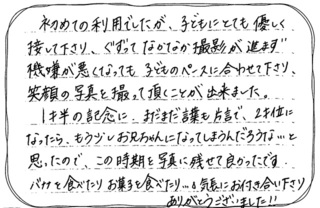 初めての利用でしたが、子どもにとても優しく
接して下さり、ぐずってなかなか撮影が進まず
機嫌が悪くなっても 子どものペースに合わせて下さり、
笑顔の写真を撮って頂くことが出来ました。
1才半の記念に。まだまだ言葉も片言で、2才位に
なったら、もう少しお兄ちゃんになってしまうんだろうな…と
思ったので、この時期を写真に残せて良かったです。
バナナを食べたり お菓子を食べたり…も気長にお付き合い下さり
ありがとうございました!!